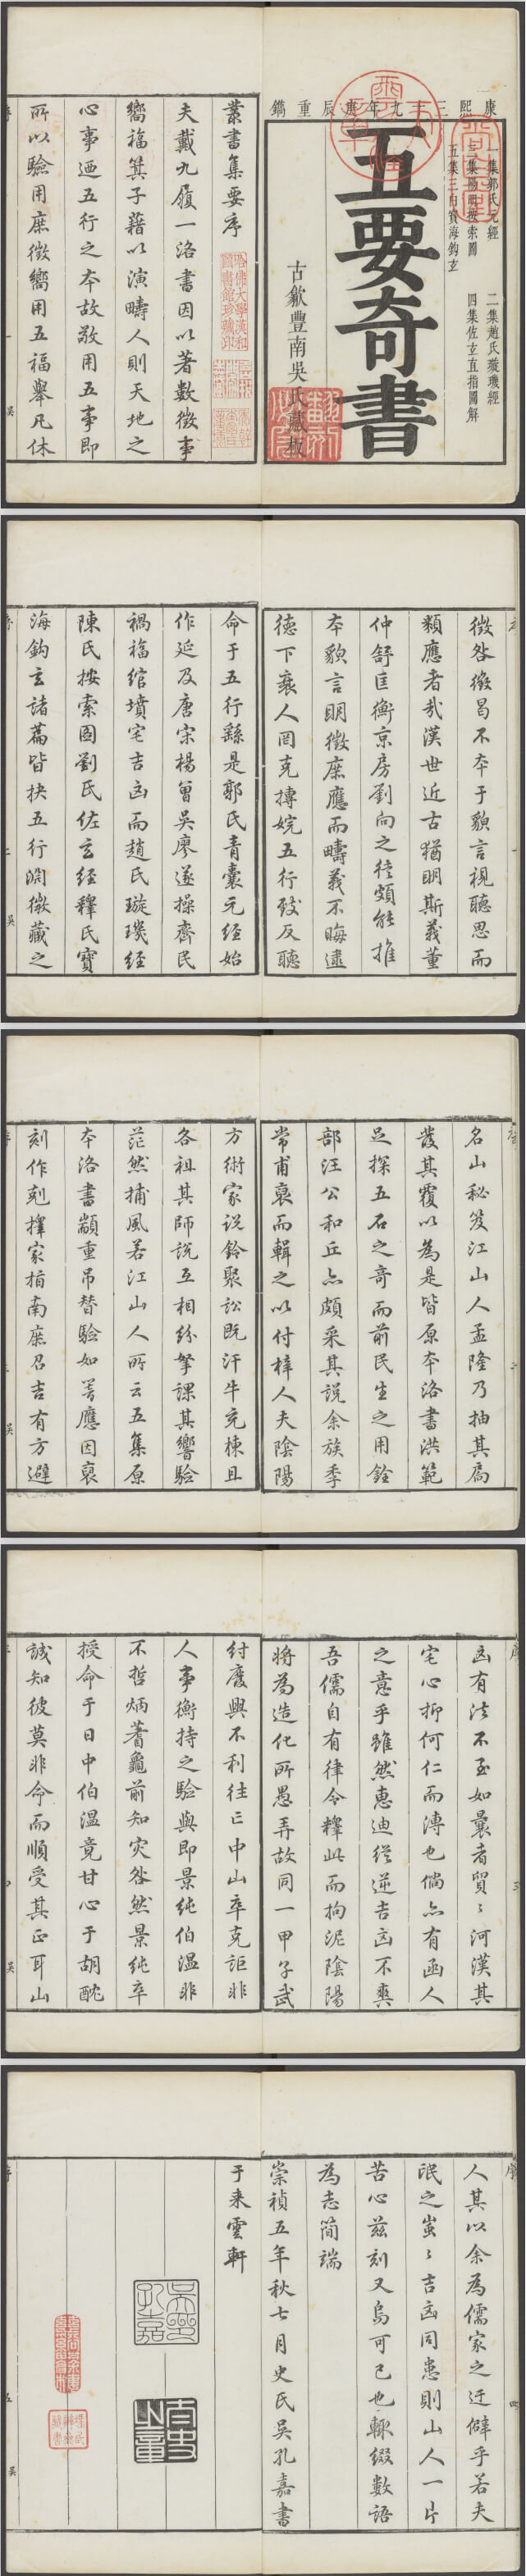 康熙三十九年庚辰重鐫
一集郭氏元經
二集趙氏璇璣經
三集陽明按索圖
四集佐玄直指圖解
五集三白寶海鈎玄
五要奇書
古歙豐南吳氏藏板
叢書集要序
夫戴九履一洛書因以著數徵事
嚮福箕子藉以演疇人則天地之
心事廼五行之本故敬用五事即
所以驗用庶徵嚮用五福舉凡休
徵咎徵曷不本于貌言視聽思而
類應者哉漢世近古猶明斯義董
仲舒匡衡京房劉向之徒頗能推
本貌言明徵庶應而疇義不晦逮
德下衰人罔克摶捖五行致反聽
命于五行繇是郭氏青囊元經始
作延及唐宋楊曾吳廖遂操齊民
禍福綰墳宅吉凶而趙氏璇璣經
陳氏按索圖劉氏佐玄經釋氏寶
海鈎玄諸篇皆抉五行淵微藏之
名山秘笈江山人孟隆乃抽其扃
發其覆以為是皆原本洛書洪範
足探五石之奇而前民生之用銓
部汪公和丘亦頗采其說余族季
常甫裒而輯之以付梓人夫陰陽
方術家說鈴聚訟既汗牛充棟且
各祖其師說互相紛拏課其響驗
茫然捕風若江山人所云五集原
本洛書顓重吊替驗如筈應因裒
刻作剋擇家指南庶召吉有方避
凶有法不至如曩者貿〻河漢其
宅心抑何仁而漙也倘亦有函人
之意乎雖然惠迪從逆吉凶不爽
吾儒自有律令釋此而拘泥陰陽
將為造化所愚弄故同一甲子武
紂廢興不利往亡中山卒克詎非
人事衡持之驗與即景純伯溫非
不哲炳蓍龜前知灾咎然景純卒
授命于日中伯溫竟甘心于胡酖
誠知彼莫非命而順受其正耳山
人其以余為儒家之迂僻乎若夫
泯之蚩〻吉凶同患則山人一片
苦心茲刻又烏可已也輙綴數語
為志簡端
崇禎五年秋七月史氏吳孔嘉書
于来雲軒